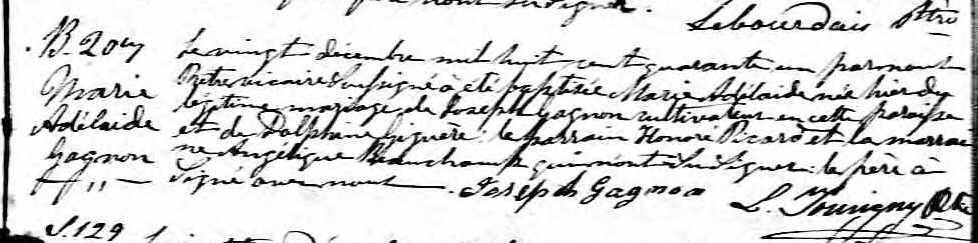 Lebourdais Ptre
B. 204
Marie
Adélaide
Gagnon
Le vingt décembre mil huit cent quarante un par nous
Prêtre vicaire Soussigné à été baptisée Marie Adélaide née hier du
légitime mariage de Joseph Gagnon cultivateur en cette paroisse
et de Dolphine Giguere : le parrain Honoré Picard et la marrai
ne Angélique Beauchamp qui n'ont Su Signer : le père à
Signé avec nous. Joseph Gagnon
L. Tourigny Ptre
S. 129